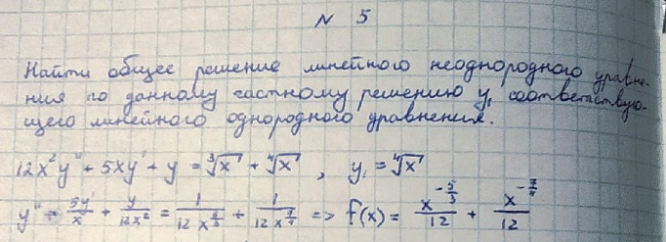 N 5
Найти общее решение линейного неоднородного уравне-
ния по данному частному решению y₁ соответствую-
щего линейного однородного уравнения.
12x²y" + 5xy' + y = ∛x + ∜x , y₁ = ∜x
y" + 5y'/x + y/12x² = 1/12x^(5/3) + 1/12x^(7/4) => f(x) = x^(-5/3)/12 + x^(-7/4)/12